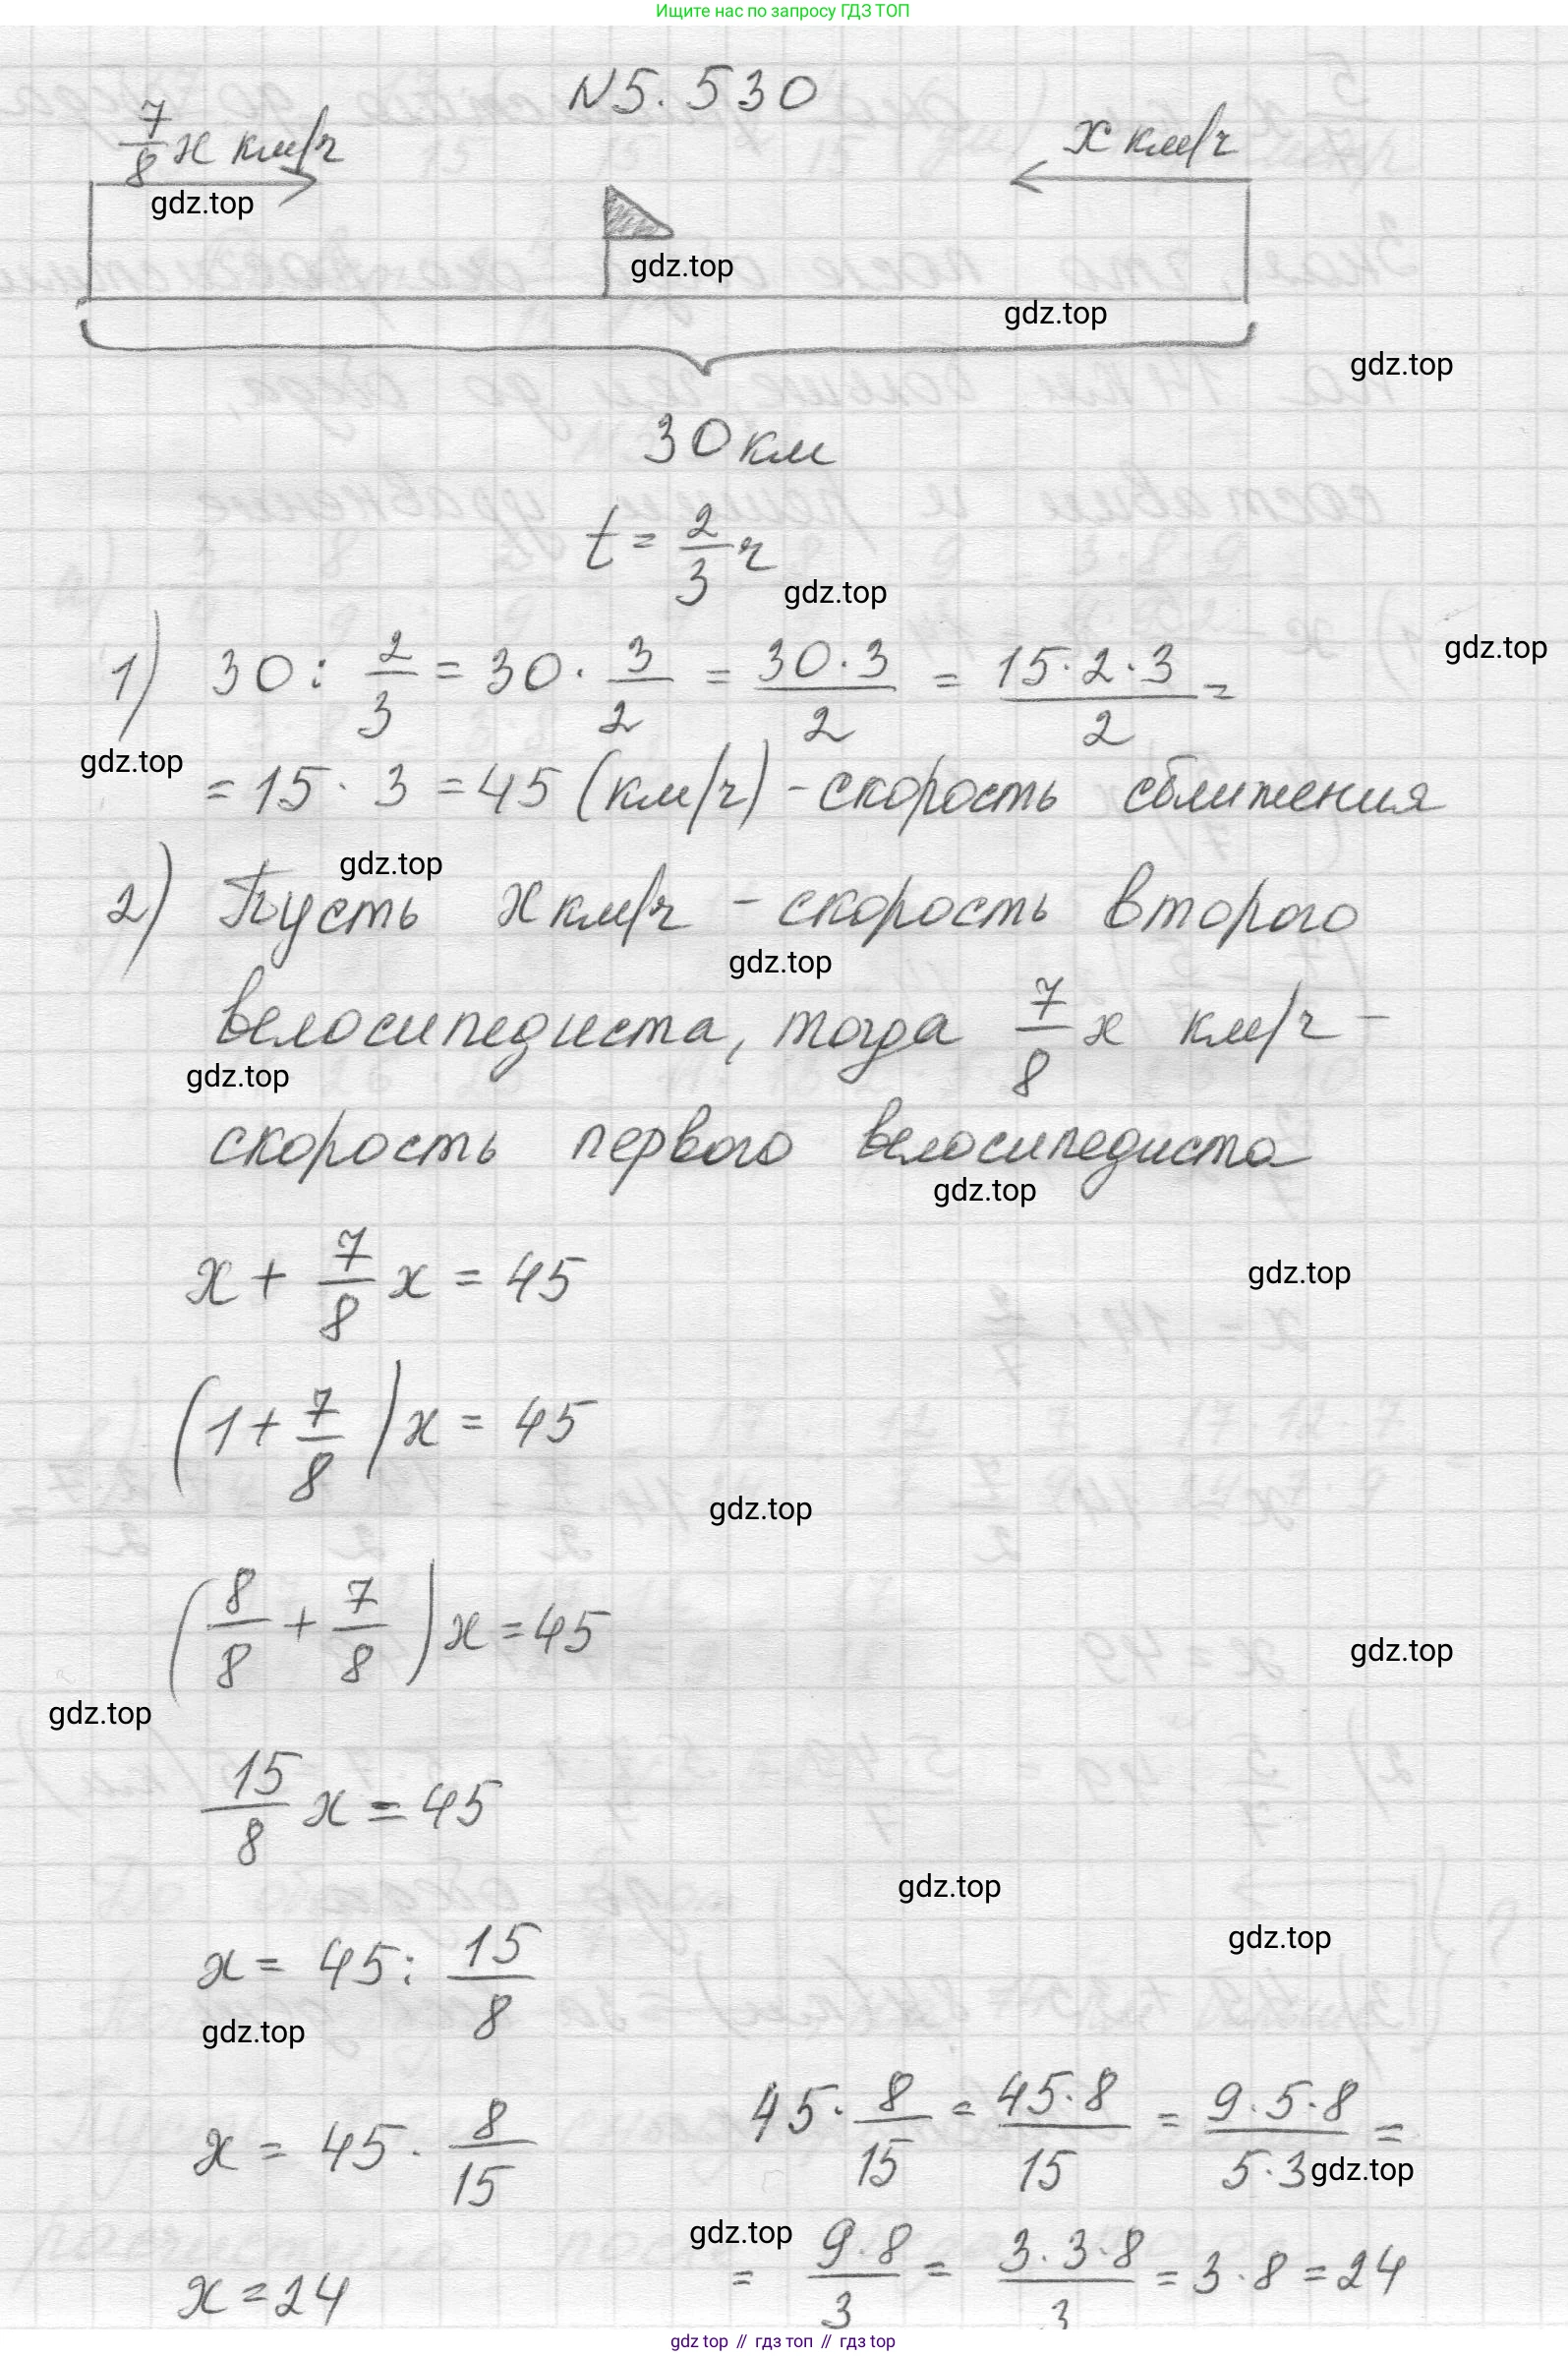 Ищите нас по запросу ГДЗ ТОП
N5.530
7/8 x км/ч
x км/ч
gdz.top
gdz.top
gdz.top
gdz.top
30 км
t = 2/3 ч
gdz.top
1) 30 : 2/3 = 30 · 3/2 = 30·3/2 = 15·2·3/2 =
gdz.top
gdz.top
= 15 · 3 = 45 (км/ч) - скорость сближения
gdz.top
2) Пусть x км/ч - скорость второго
gdz.top
велосипедиста, тогда 7/8 x км/ч -
gdz.top
скорость первого велосипедиста
gdz.top
x + 7/8 x = 45
gdz.top
(1 + 7/8) x = 45
gdz.top
(8/8 + 7/8) x = 45
gdz.top
gdz.top
15/8 x = 45
gdz.top
gdz.top
x = 45 : 15/8
gdz.top
x = 45 · 8/15
45 · 8/15 = 45·8/15 = 9·5·8/5·3 =
gdz.top
gdz.top
= 9·8/3 = 3·3·8/3 = 3·8 = 24
x = 24
gdz top // гдз топ // гдз top